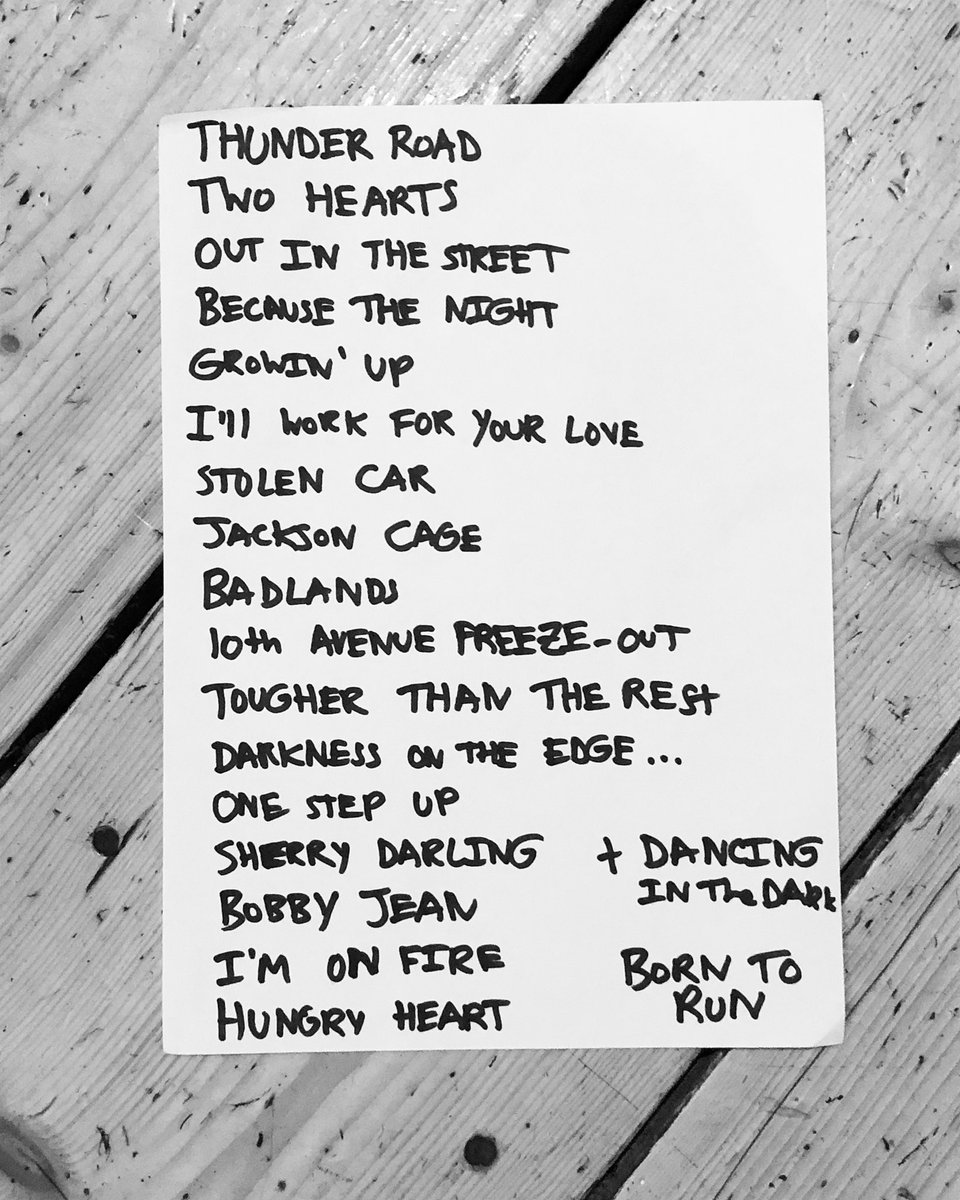 THUNDER ROAD
TWO HEARTS
OUT IN THE STREET
BECAUSE THE NIGHT
GROWIN' UP
I'll WORK FOR YOUR LOVE
STOLEN CAR
JACKSON CAGE
BADLANDS
10th AVENUE FREEZE-OUT
TOUGHER THAN THE REST
DARKNESS ON THE EDGE...
ONE STEP UP
SHERRY DARLING
BOBBY JEAN
I'M ON FIRE
HUNGRY HEART
+ DANCING
IN The DARK
BORN TO
RUN